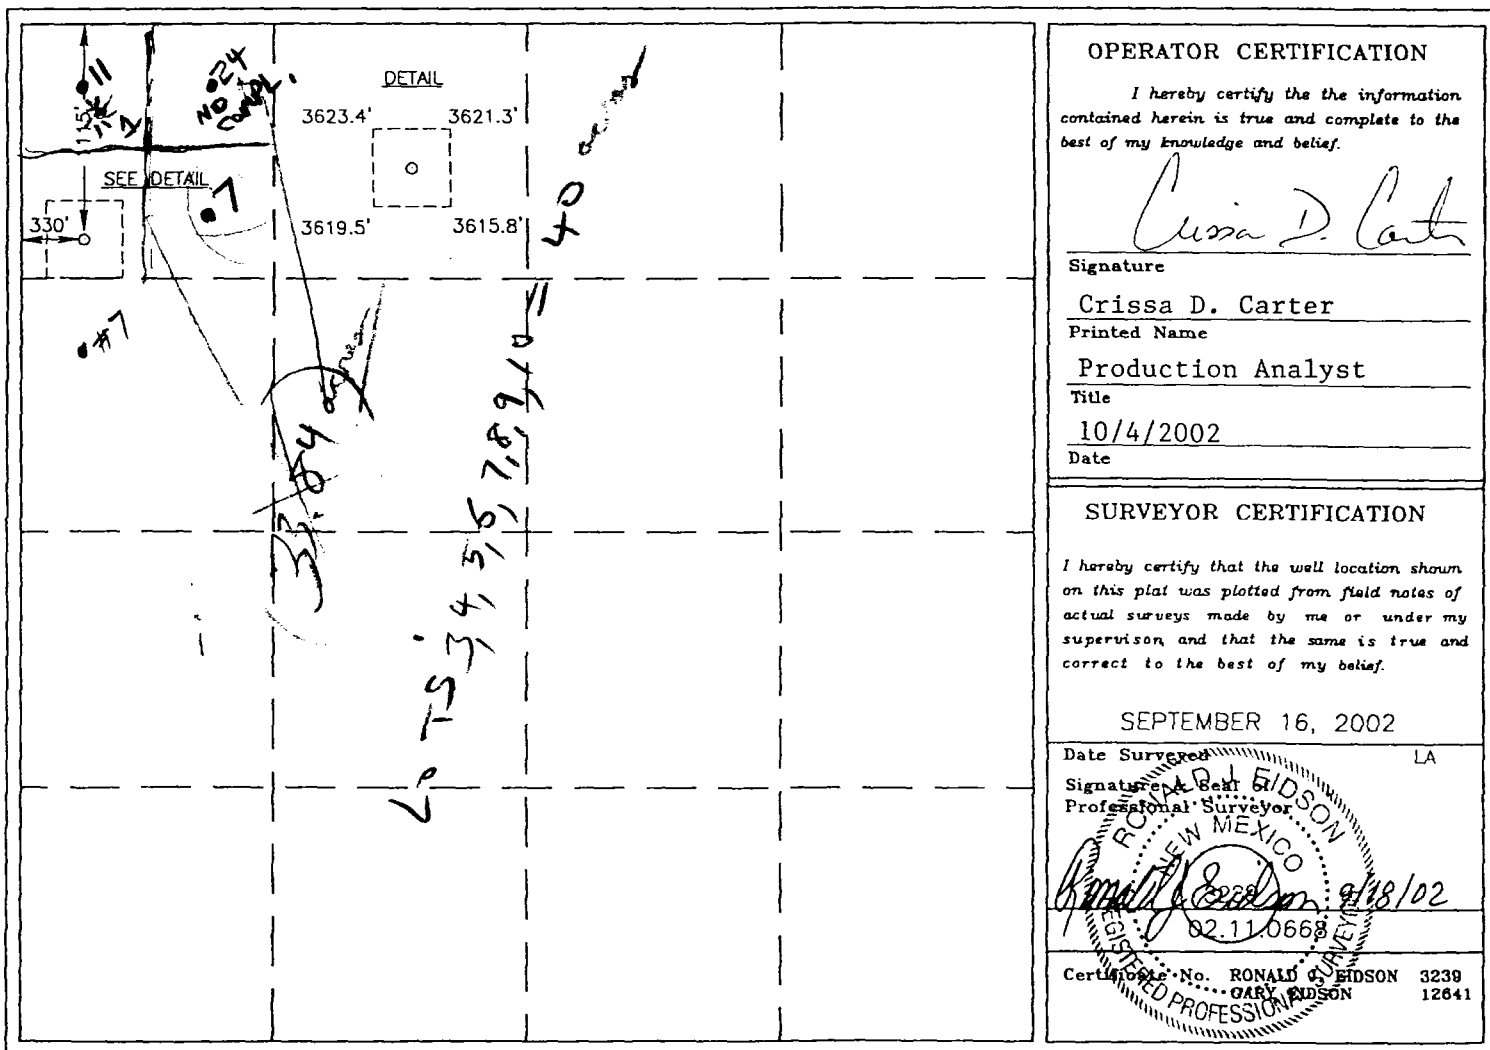 11
24
NO
COMPL.
DETAIL
3623.4'
3621.3'
3619.5'
3615.8'
SEE DETAIL
330'
7
#7
33.84 acres
LOTS 3,4,5,6,7,8,9,10 = 40 acres
OPERATOR CERTIFICATION
I hereby certify the the information
contained herein is true and complete to the
best of my knowledge and belief.
Crissa D. Carter
Signature
Crissa D. Carter
Printed Name
Production Analyst
Title
10/4/2002
Date
SURVEYOR CERTIFICATION
I hereby certify that the well location shown
on this plat was plotted from field notes of
actual surveys made by me or under my
supervison, and that the same is true and
correct to the best of my belief.
SEPTEMBER 16, 2002
Date Surveyed LA
Signature & Seal of
Professional Surveyor
RONALD J. EIDSON
NEW MEXICO
3239
REGISTERED PROFESSIONAL SURVEYOR
Ronald J. Eidson 9/18/02
02.11.0668
Certificate No. RONALD J. EIDSON 3239
GARY EIDSON 12641